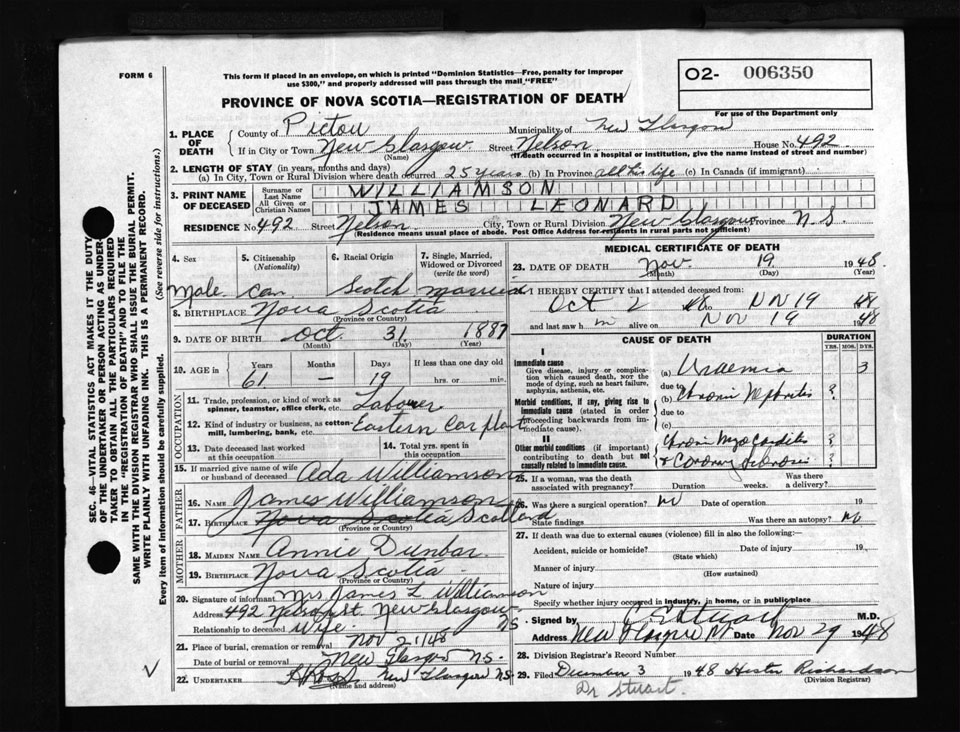 FORM 6
This form if placed in an envelope, on which is printed "Dominion Statistics—Free, penalty for improper
use $300," and properly addressed will pass through the mail "FREE"
O2- 006350
For use of the Department only
PROVINCE OF NOVA SCOTIA—REGISTRATION OF DEATH
1. PLACE OF DEATH
County of Pictou Municipality of New Glasgow
If in City or Town New Glasgow (Name) Street Nelson House No. 492
(If death occurred in a hospital or institution, give the name instead of street and number)
2. LENGTH OF STAY (in years, months and days)
(a) In City, Town or Rural Division where death occurred 25 years (b) In Province all his life (c) In Canada (if immigrant)
3. PRINT NAME OF DECEASED
Surname or Last Name WILLIAMSON
All Given or Christian Names JAMES LEONARD
RESIDENCE No. 492 Street Nelson City, Town or Rural Division New Glasgow Province N.S.
(Residence means usual place of abode. Post Office Address for residents in rural parts not sufficient)
4. Sex Male
5. Citizenship (Nationality) Can
6. Racial Origin Scotch
7. Single, Married, Widowed or Divorced (write the word) married
8. BIRTHPLACE Nova Scotia
(Province or Country)
9. DATE OF BIRTH Oct. 31 1887
(Month) (Day) (Year)
10. AGE in Years 61 Months — Days 19 If less than one day old
hrs. or min.
OCCUPATION
11. Trade, profession, or kind of work as spinner, teamster, office clerk, etc. Labourer
12. Kind of industry or business, as cotton-mill, lumbering, bank, etc. Eastern Car plant
13. Date deceased last worked at this occupation
14. Total yrs. spent in this occupation
15. If married give name of wife or husband of deceased Ada Williamson
FATHER
16. NAME James Williamson
17. BIRTHPLACE Nova Scotia Scotland
(Province or Country)
MOTHER
18. MAIDEN NAME Annie Dunbar
19. BIRTHPLACE Nova Scotia
(Province or Country)
20. Signature of informant Mrs James L Williamson
Address 492 Nelson St. New Glasgow NS
Relationship to deceased Wife
21. Place of burial, cremation or removal Nov 21/48
Date of burial or removal New Glasgow N.S.
22. UNDERTAKER New Glasgow N.S.
(Name and address)
MEDICAL CERTIFICATE OF DEATH
23. DATE OF DEATH Nov. 19 1948
(Month) (Day) (Year)
I HEREBY CERTIFY that I attended deceased from:
Oct 2 48 to Nov 19 48
and last saw him alive on Nov 19 1948
CAUSE OF DEATH
DURATION
YRS. MOS. DYS.
I
Immediate cause
Give disease, injury or complication which caused death, NOT the mode of dying, such as heart failure, asphyxia, asthenia, etc.
(a) Uraemia 3
due to
(b) Chronic Nephritis ?
Morbid conditions, if any, giving rise to immediate cause (stated in order proceeding backwards from immediate cause).
due to
(c)
II
Other morbid conditions (if important) contributing to death but not causally related to immediate cause.
Chronic Myocarditis ?
+ Coronary Sclerosis ?
25. If a woman, was the death associated with pregnancy? Duration weeks. Was there a delivery?
26. Was there a surgical operation? No Date of operation 19
State findings Was there an autopsy? No
27. If death was due to external causes (violence) fill in also the following:—
Accident, suicide or homicide? (State which) Date of injury 19
Manner of injury
(How sustained)
Nature of injury
Specify whether injury occurred in industry, in home, or in public place
Signed by Stuart M.D.
Address New Glasgow Date Nov 29 1948
28. Division Registrar's Record Number
29. Filed December 3 1948 Hester Richardson
(Division Registrar)
Dr Stuart.
SEC. 46—VITAL STATISTICS ACT MAKES IT THE DUTY
OF THE UNDERTAKER OR PERSON ACTING AS UNDER-
TAKER TO OBTAIN ALL THE PARTICULARS REQUIRED
IN THE "REGISTRATION OF DEATH" AND TO FILE THE
SAME WITH THE DIVISION REGISTRAR WHO SHALL ISSUE THE BURIAL PERMIT.
WRITE PLAINLY WITH UNFADING INK. THIS IS A PERMANENT RECORD.
Every item of information should be carefully supplied. (See reverse side for instructions.)